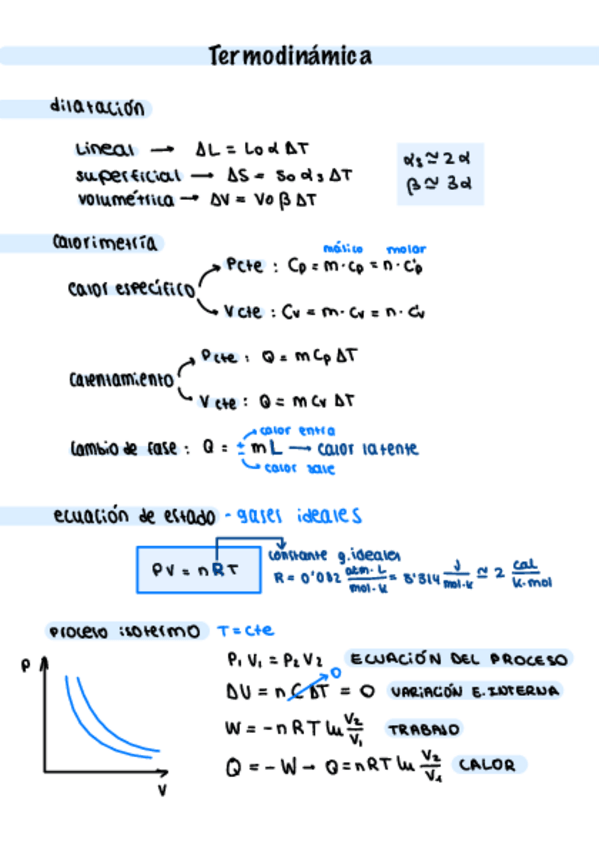 Termodinámica
dilatación
Lineal → ΔL = Lo α ΔT
superficial → ΔS = So αs ΔT
volumétrica → ΔV = Vo β ΔT
αs ≃ 2α
β ≃ 3α
calorimetría
másico molar
calor específico
Pcte : Cp = m·cp = n·c'p
Vcte : Cv = m·cv = n·c'v
calentamiento
Pcte : Q = m Cp ΔT
Vcte : Q = m Cv ΔT
calor entra
Cambio de fase : Q = ± m L → calor latente
calor sale
ecuación de estado - gases ideales
PV = nRT
constante g.ideales
R = 0'082 atm·L/mol·K = 8'314 J/mol·K ≃ 2 cal/K·mol
proceso isotermo T = cte
P
V
P₁ V₁ = P₂ V₂ ECUACIÓN DEL PROCESO
ΔU = n C ΔT = 0 VARIACIÓN E.INTERNA
0
W = -nRT ln V₂/V₁ TRABAJO
Q = -W → Q = nRT ln V₂/V₁ CALOR